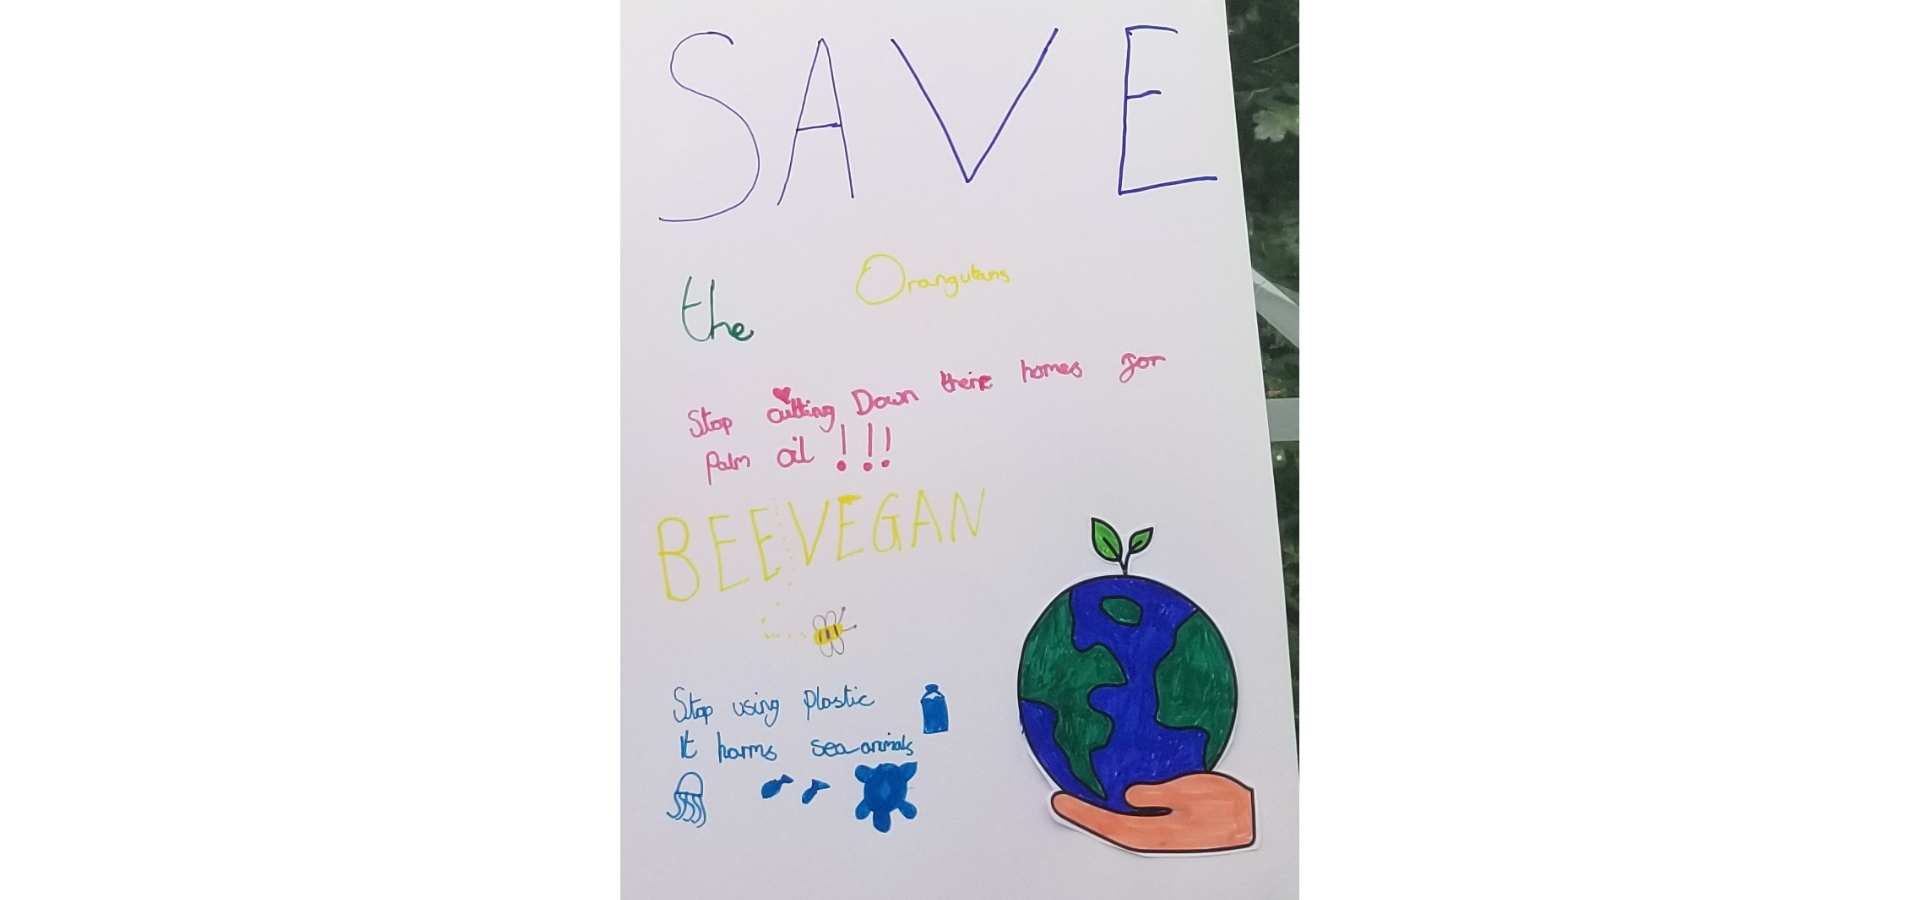 SAVE
the Orangutans
Stop cutting Down their homes for
palm oil!!!
BEEVEGAN
Stop using plastic
It harms sea animals